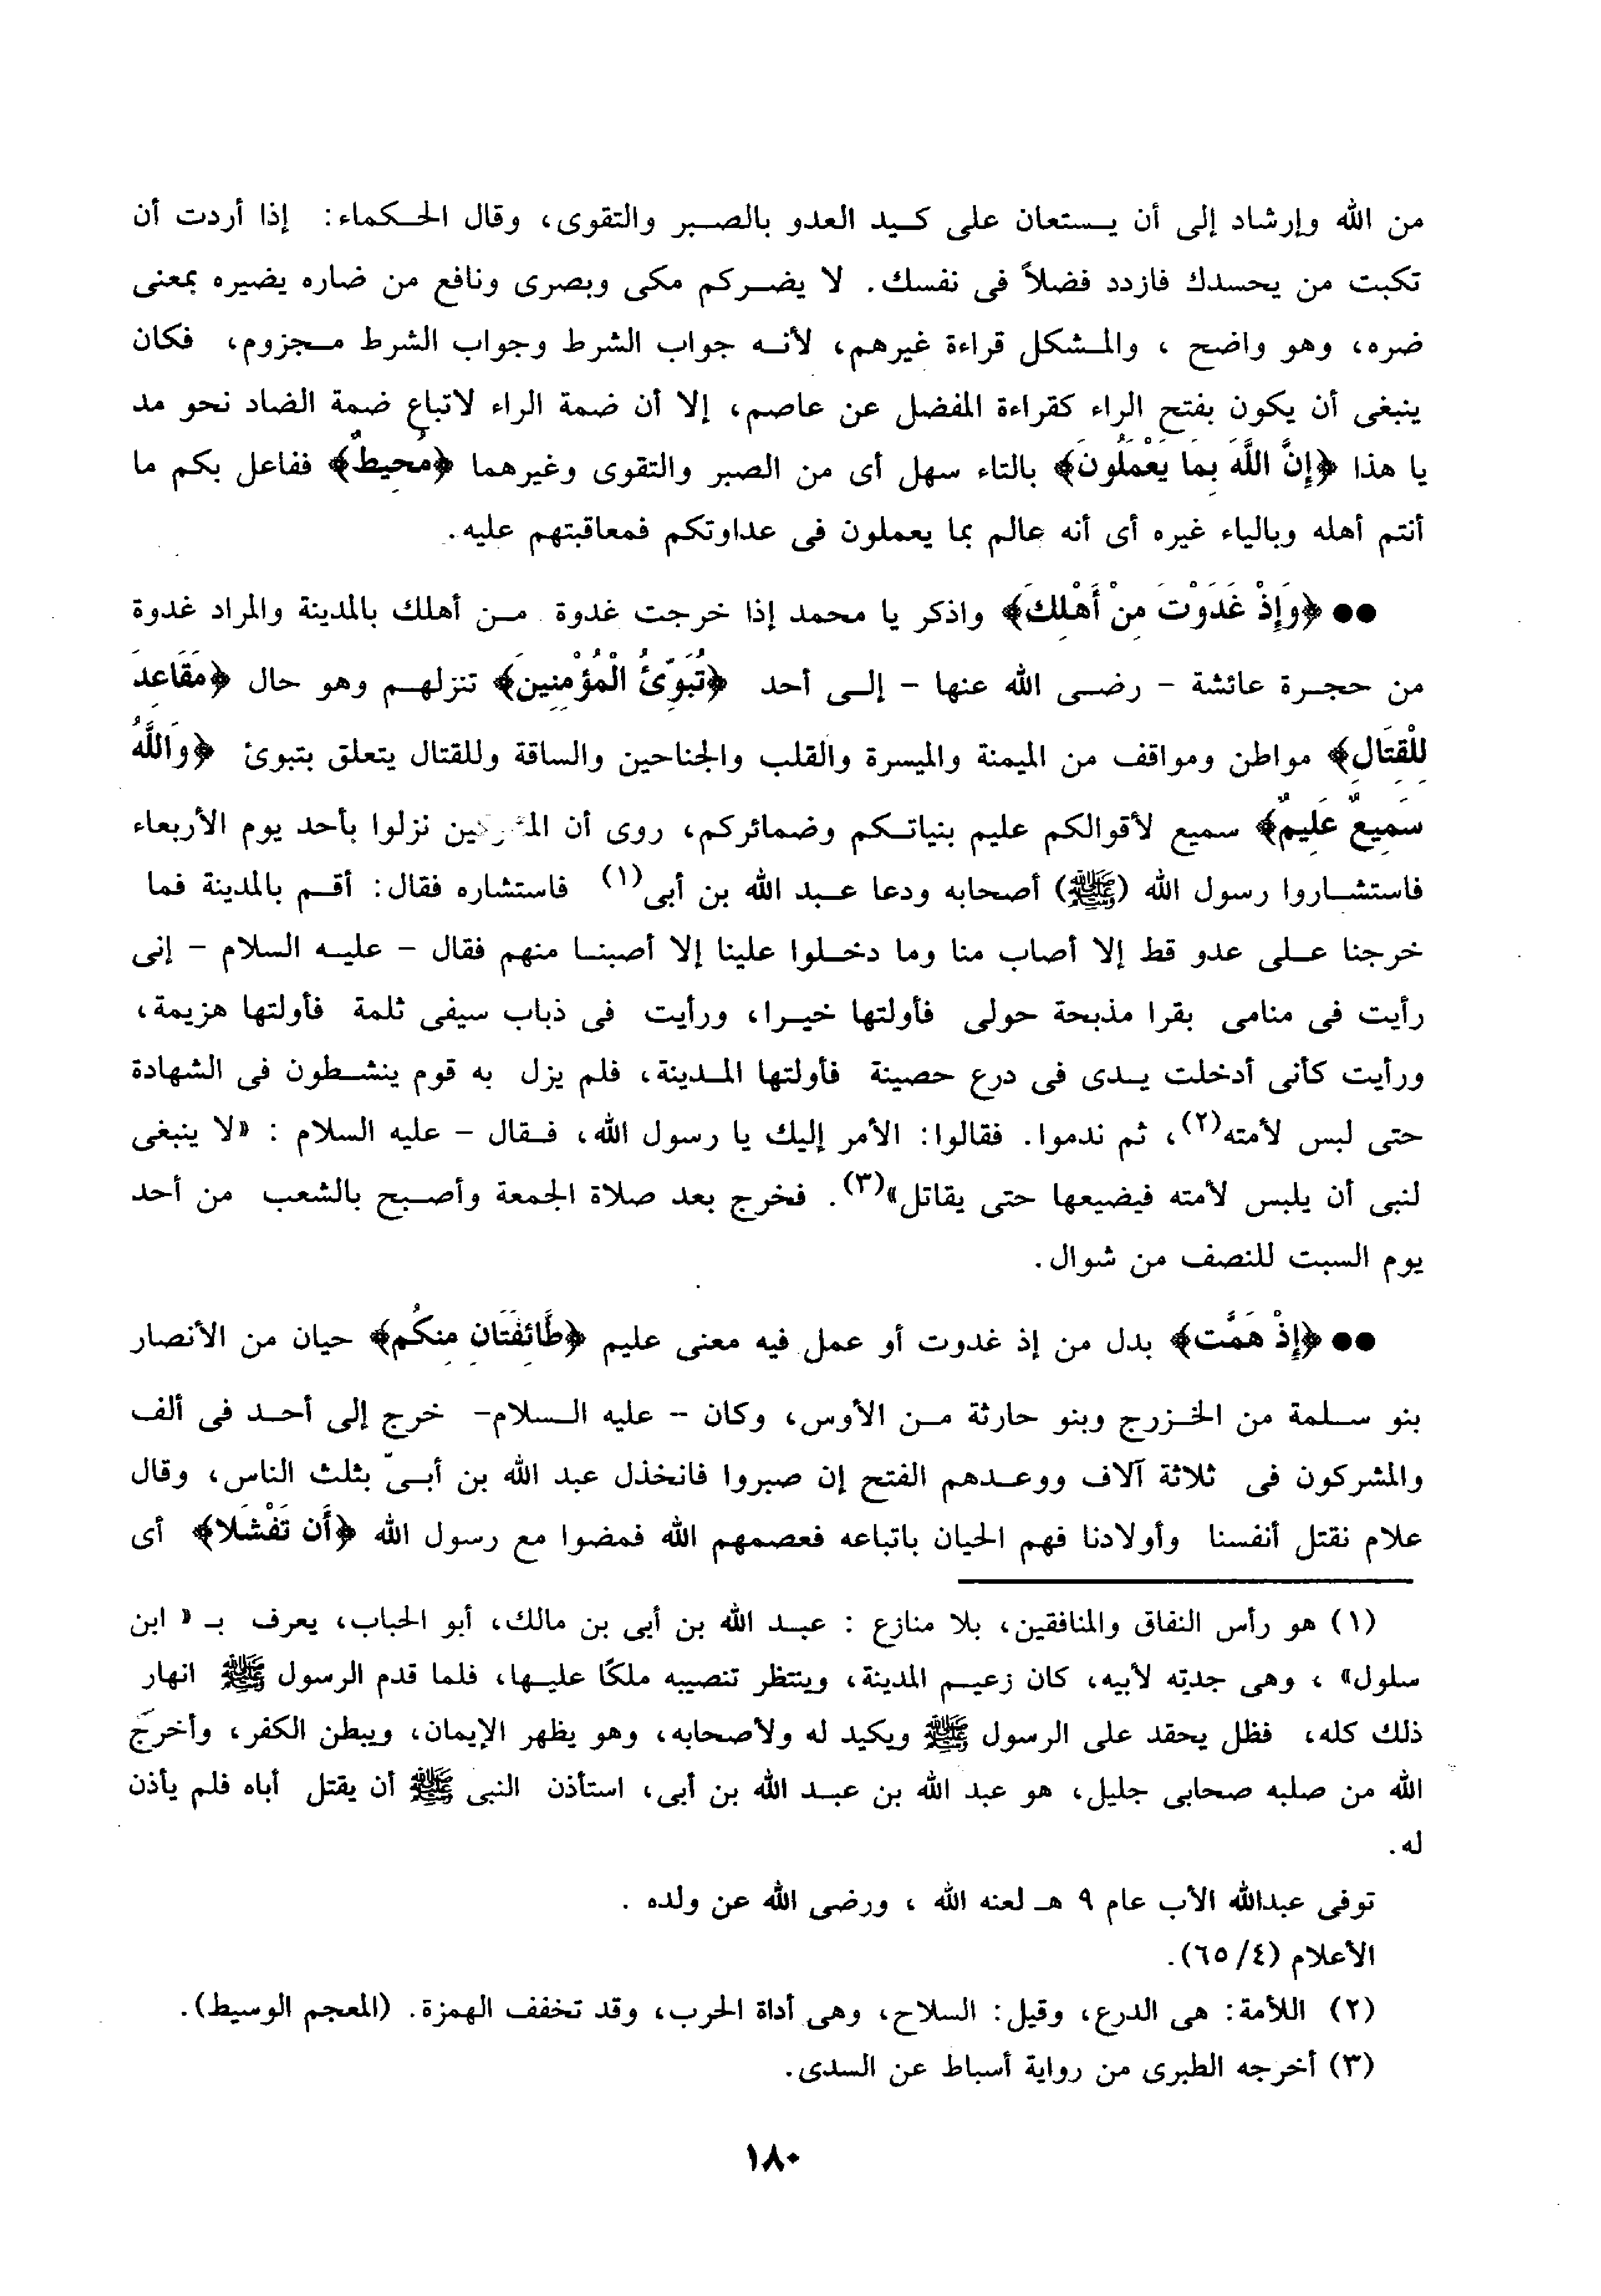 من الله وإرشاد إلى أن يستعان على كيد العدو بالصبر والتقوى، وقال الحكماء: إذا أردت أن
تكبت من يحسدك فازدد فضلاً فى نفسك. لا يضركم مكى وبصرى ونافع من ضاره يضيره بمعنى
ضره، وهو واضح ، والمشكل قراءة غيرهم، لأنه جواب الشرط وجواب الشرط مجزوم، فكان
ينبغى أن يكون بفتح الراء كقراءة المفضل عن عاصم، إلا أن ضمة الراء لاتباع ضمة الضاد نحو مد
يا هذا ﴿إِنَّ اللَّهَ بِمَا يَعْمَلُونَ﴾ بالتاء سهل أى من الصبر والتقوى وغيرهما ﴿مُحِيطٌ﴾ ففاعل بكم ما
أنتم أهله وبالياء غيره أى أنه عالم بما يعملون فى عداوتكم فمعاقبتهم عليه.
●● ﴿وَإِذْ غَدَوْتَ مِنْ أَهْلِكَ﴾ واذكر يا محمد إذا خرجت غدوة من أهلك بالمدينة والمراد غدوة
من حجرة عائشة - رضى الله عنها - إلى أحد ﴿تُبَوِّئُ الْمُؤْمِنِينَ﴾ تنزلهم وهو حال ﴿مَقَاعِدَ
لِلْقِتَالِ﴾ مواطن ومواقف من الميمنة والميسرة والقلب والجناحين والساقة وللقتال يتعلق بتبوئ ﴿وَاللَّهُ
سَمِيعٌ عَلِيمٌ﴾ سميع لأقوالكم عليم بنياتكم وضمائركم، روى أن المشركين نزلوا بأحد يوم الأربعاء
فاستشاروا رسول الله (ﷺ) أصحابه ودعا عبد الله بن أبى(١) فاستشاره فقال: أقم بالمدينة فما
خرجنا على عدو قط إلا أصاب منا وما دخلوا علينا إلا أصبنا منهم فقال - عليه السلام - إنى
رأيت فى منامى بقرا مذبحة حولى فأولتها خيرا، ورأيت فى ذباب سيفى ثلمة فأولتها هزيمة،
ورأيت كأنى أدخلت يدى فى درع حصينة فأولتها المدينة، فلم يزل به قوم ينشطون فى الشهادة
حتى لبس لأمته(٢)، ثم ندموا. فقالوا: الأمر إليك يا رسول الله، فقال - عليه السلام : «لا ينبغى
لنبى أن يلبس لأمته فيضيعها حتى يقاتل»(٣). فخرج بعد صلاة الجمعة وأصبح بالشعب من أحد
يوم السبت للنصف من شوال.
●● ﴿إِذْ هَمَّت﴾ بدل من إذ غدوت أو عمل فيه معنى عليم ﴿طَّائِفَتَانِ مِنكُم﴾ حيان من الأنصار
بنو سلمة من الخزرج وبنو حارثة من الأوس، وكان -- عليه السلام- خرج إلى أحد فى ألف
والمشركون فى ثلاثة آلاف ووعدهم الفتح إن صبروا فانخذل عبد الله بن أبىّ بثلث الناس، وقال
علام نقتل أنفسنا وأولادنا فهم الحيان باتباعه فعصمهم الله فمضوا مع رسول الله ﴿أَن تَفْشَلا﴾ أى
(١) هو رأس النفاق والمنافقين، بلا منازع : عبد الله بن أبى بن مالك، أبو الحباب، يعرف بـ « ابن
سلول» ، وهى جدته لأبيه، كان زعيم المدينة، وينتظر تنصيبه ملكًا عليها، فلما قدم الرسول ﷺ انهار
ذلك كله، فظل يحقد على الرسول ﷺ ويكيد له ولأصحابه، وهو يظهر الإيمان، ويبطن الكفر، وأخرجَ
الله من صلبه صحابى جليل، هو عبد الله بن عبد الله بن أبى، استأذن النبى ﷺ أن يقتل أباه فلم يأذن
له.
توفى عبدالله الأب عام ٩ هـ لعنه الله ، ورضى الله عن ولده .
الأعلام (٤/ ٦٥).
(٢) اللأمة: هى الدرع، وقيل: السلاح، وهى أداة الحرب، وقد تخفف الهمزة. (المعجم الوسيط).
(٣) أخرجه الطبرى من رواية أسباط عن السدى.
١٨٠